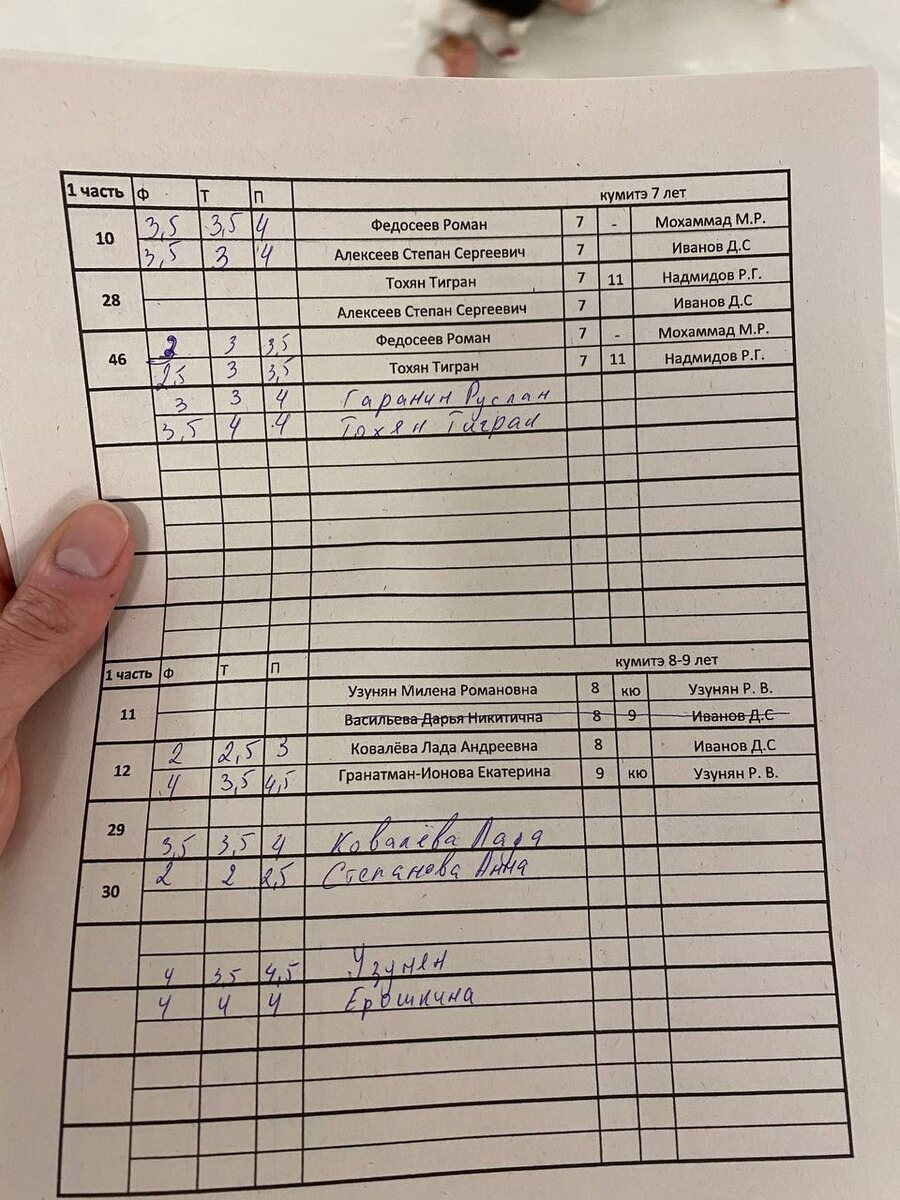 1 часть Ф Т П кумитэ 7 лет
10 3,5 3,5 4 Федосеев Роман 7 - Мохаммад М.Р.
3,5 3 4 Алексеев Степан Сергеевич 7 Иванов Д.С
28 Тохян Тигран 7 11 Надмидов Р.Г.
Алексеев Степан Сергеевич 7 Иванов Д.С
46 2 3 3,5 Федосеев Роман 7 - Мохаммад М.Р.
2,5 3 3,5 Тохян Тигран 7 11 Надмидов Р.Г.
3 3 4 Гаранин Руслан
3,5 4 4 Тохян Тигран
1 часть Ф Т П кумитэ 8-9 лет
11 Узунян Милена Романовна 8 кю Узунян Р. В.
Васильева Дарья Никитична 8 9 Иванов Д.С
12 2 2,5 3 Ковалёва Лада Андреевна 8 Иванов Д.С
4 3,5 4,5 Гранатман-Ионова Екатерина 9 кю Узунян Р. В.
29
3,5 3,5 4 Ковалёва Лада
30 2 2 2,5 Степанова Анна
4 3,5 4,5 Узунян
4 4 4 Ерошкина